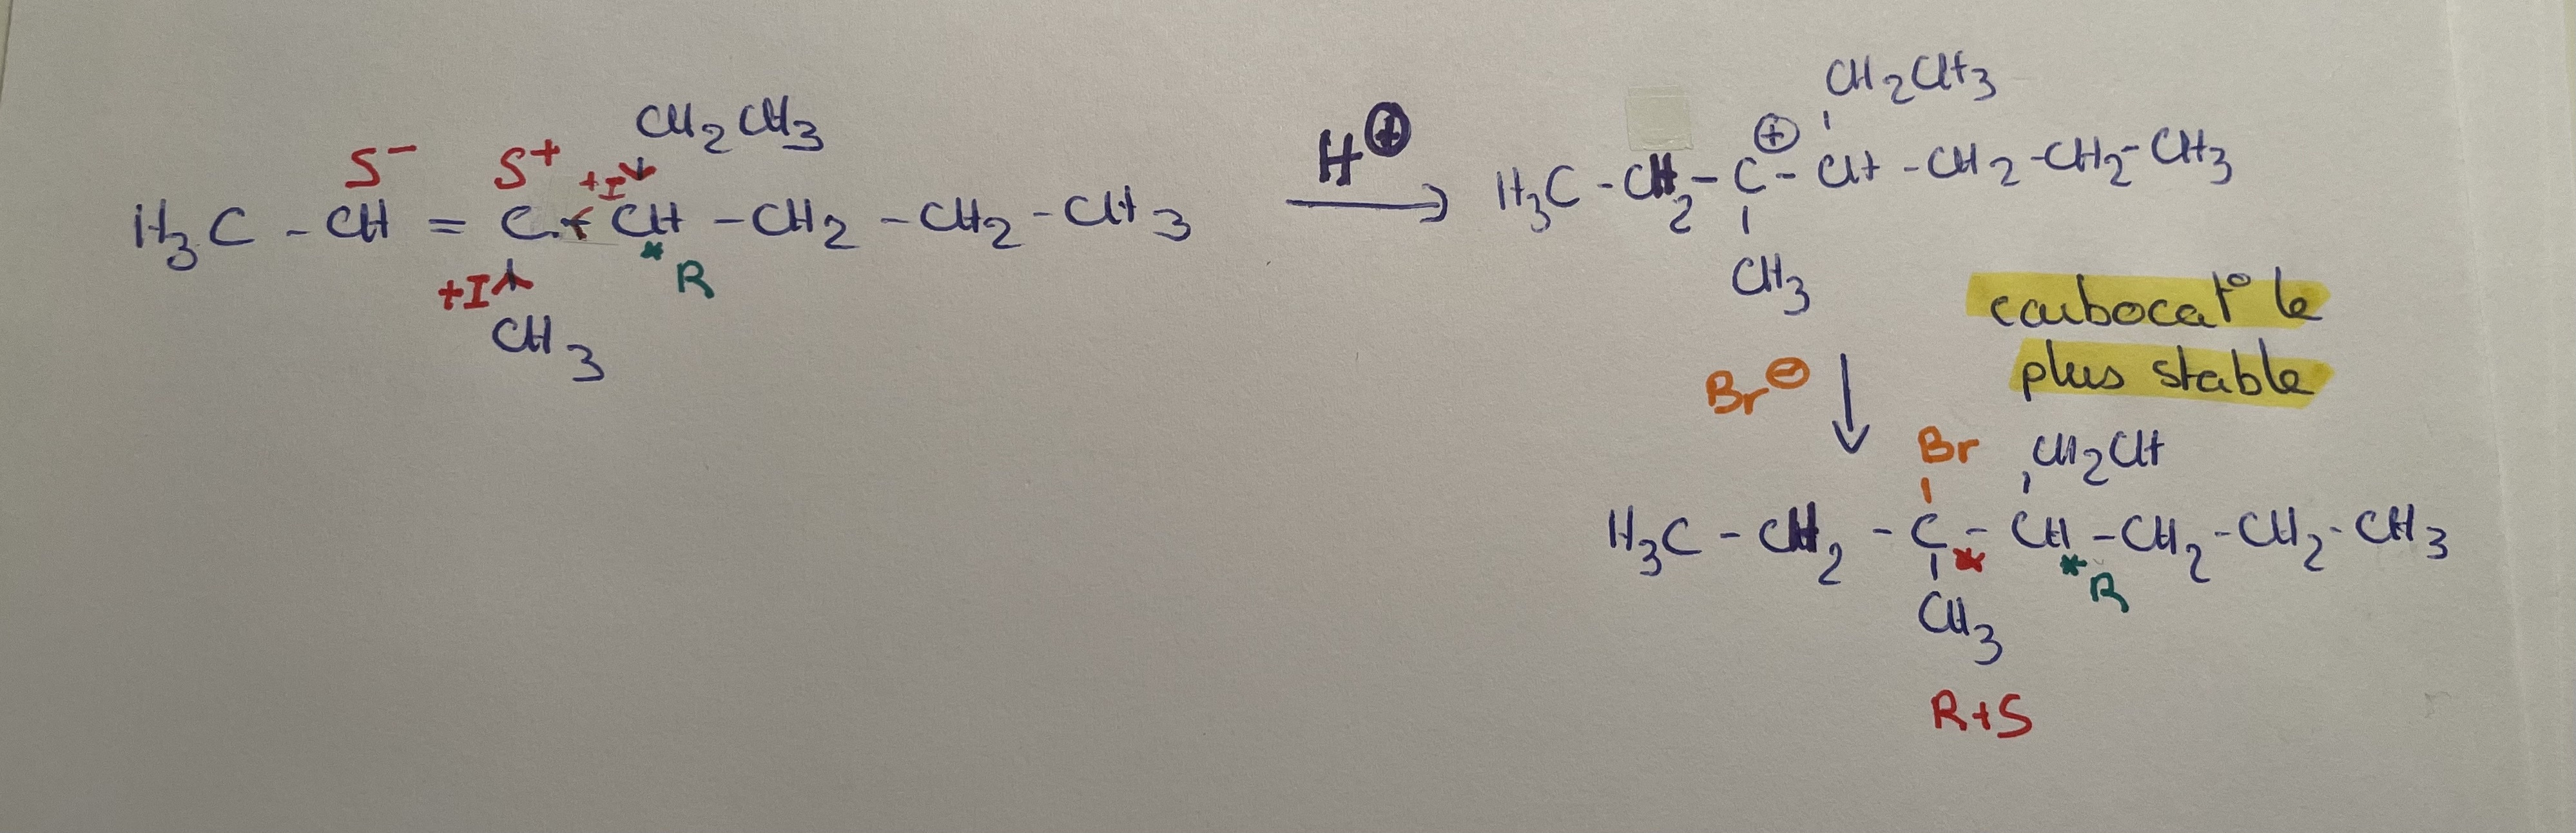 CH2CH3
S- S+ +I
H3C - CH = C - CH - CH2 - CH2 - CH3
* R
+I
CH3
H⊕
CH2CH3
⊕
H3C - CH2 - C - CH - CH2 - CH2 - CH3
CH3
carbocat° le
plus stable
Br⊖
Br CH2CH
H3C - CH2 - C - CH - CH2 - CH2 - CH3
* * R
CH3
R+S